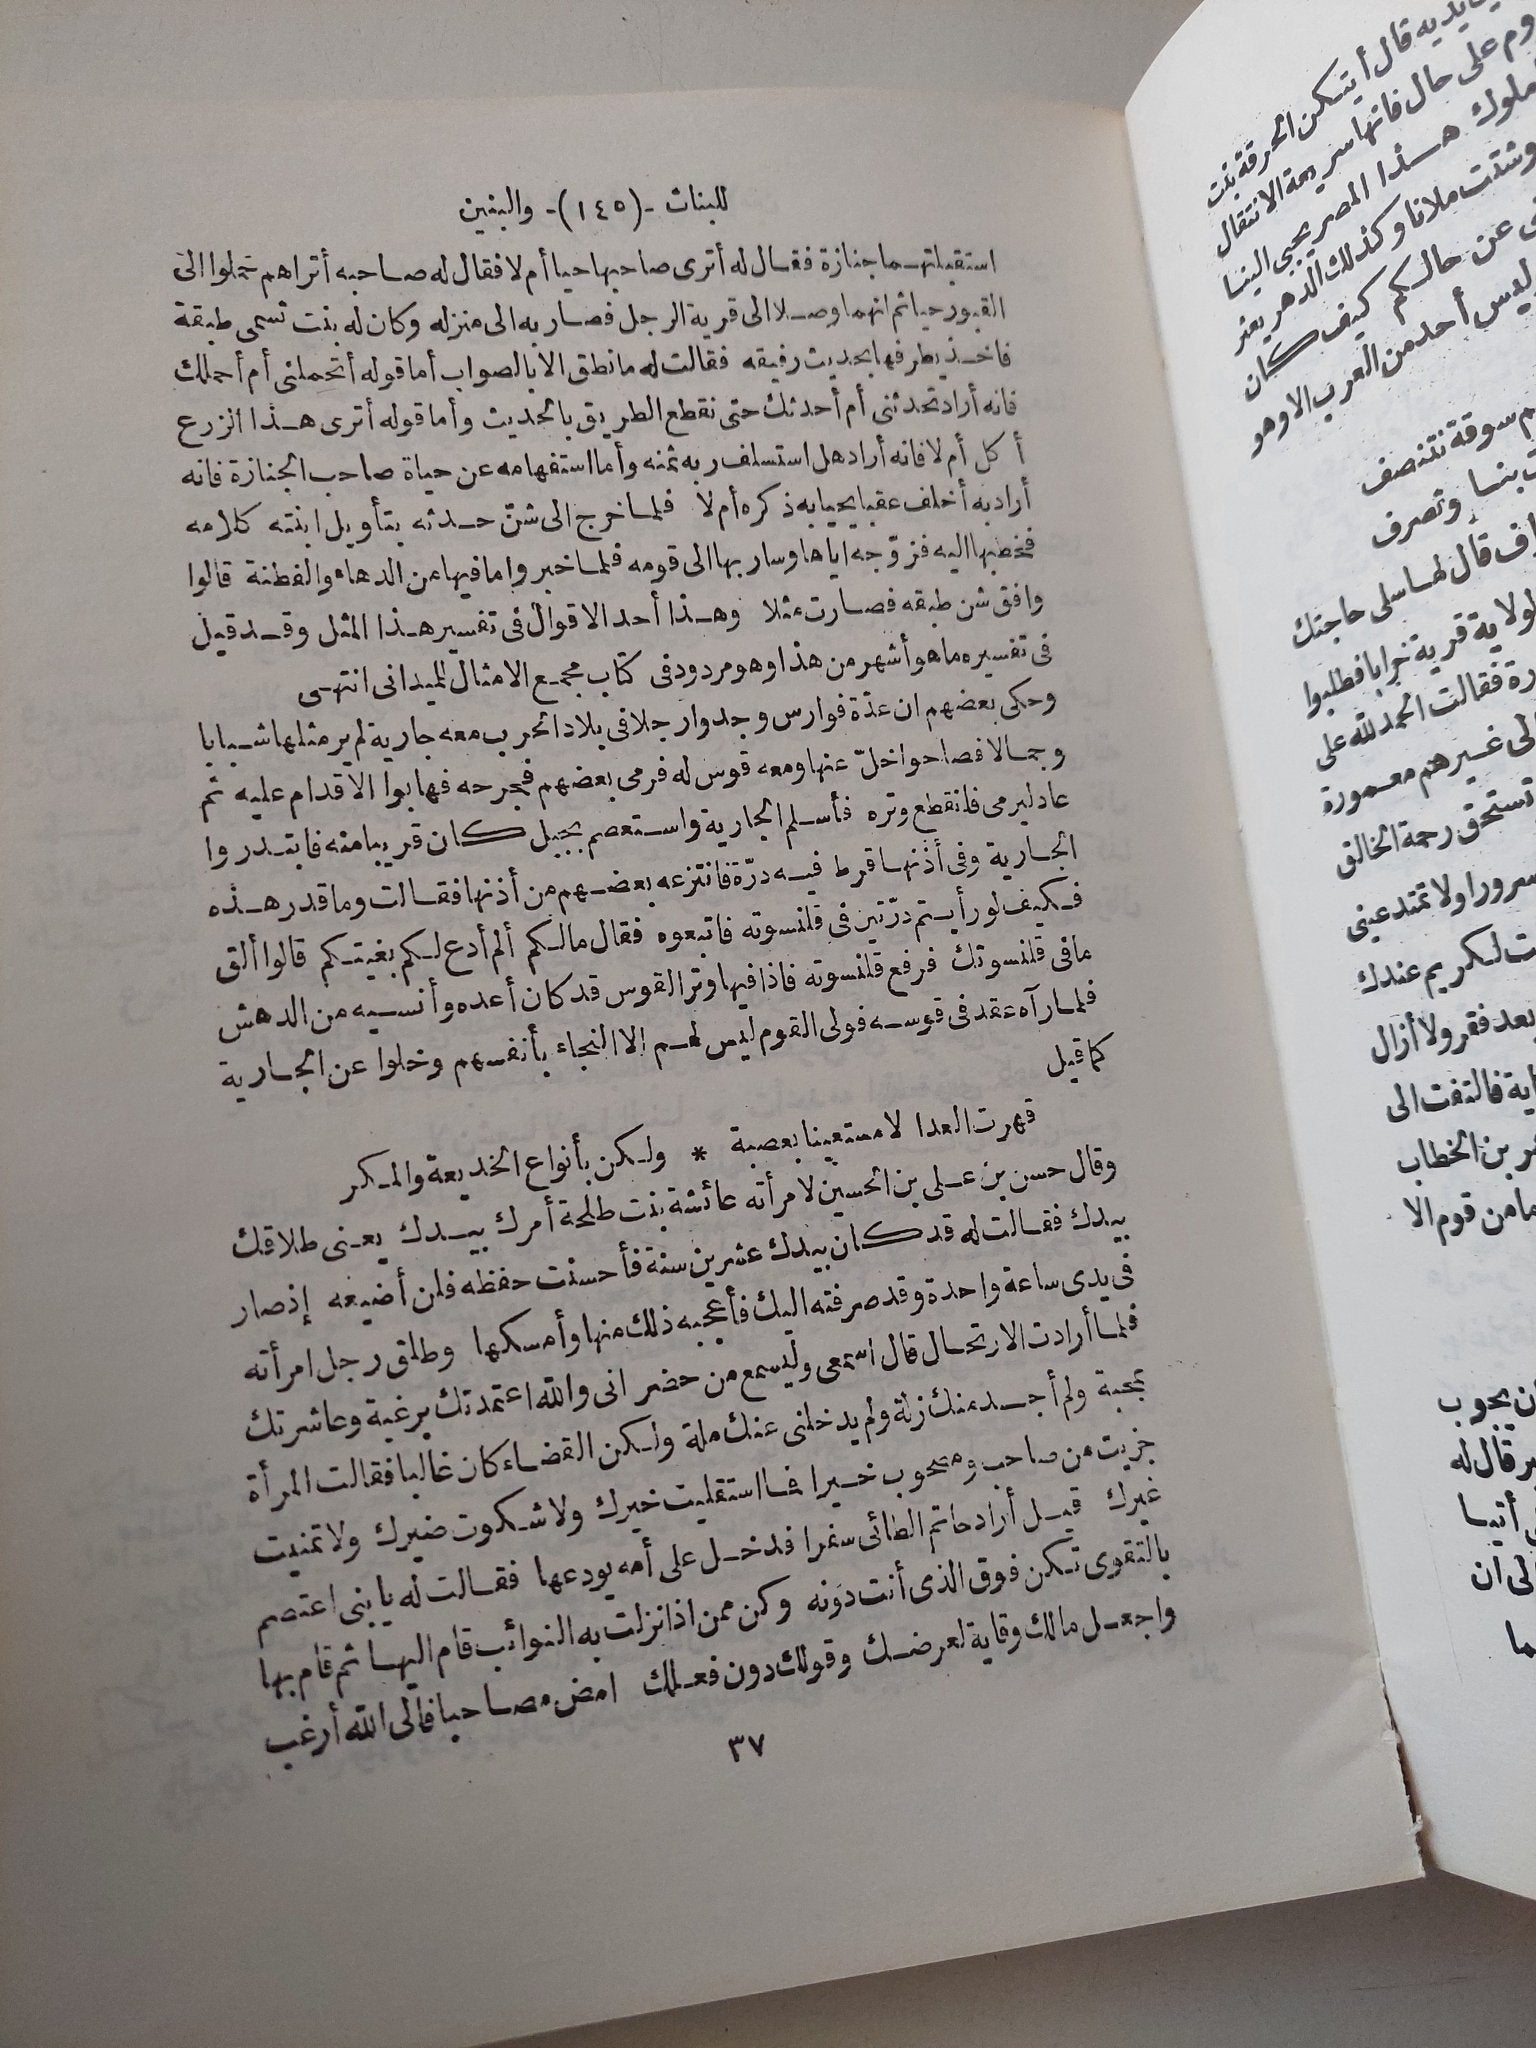 للبنات -(١٤٥)- والبنين
استقبلتهما جنازة فقال له أترى صاحبها حيا أم لا فقال له صاحبه أتراهم حملوا الى
القبور حيا ثم انهما وصلا الى قرية الرجل فصار به الى منزله وكان له بنت تسمى طبقة
فاخذ يطرفها بحديث رفيقه فقالت له ما نطق الا بالصواب أما قوله أتحملنى أم أحملك
فانه أراد تحدثنى أم أحدثك حتى نقطع الطريق بالحديث وأما قوله أترى هذا الزرع
أكل أم لا فانه أراد هل استسلف ربه ثمنه وأما استفهامه عن حياة صاحب الجنازة فانه
أراد به أخلف عقبا يحيا به ذكره أم لا فلما خرج الى شنّ حدثه بتأويل ابنته كلامه
فخطبها اليه فزوّجه اياها وسار بها الى قومه فلما خبروا ما فيها من الدهاء والفطنة قالوا
وافق شن طبقه فصارت مثلا وهذا أحد الاقوال فى تفسير هذا المثل وقد قيل
فى تفسيره ما هو أشهر من هذا وهو مردود فى كتاب مجمع الامثال للميدانى انتهى
وحكى بعضهم ان عدّة فوارس وجدوا رجلا فى بلاد الحرب معه جارية لم ير مثلها شبابا
وجمالا فصاحوا خلّ عنها ومعه قوس له فرمى بعضهم فجرحه فهابوا الاقدام عليه ثم
عاد ليرمى فانقطع وتره فأسلم الجارية واستعصم بجبل كان قريبا منه فابتدروا
الجارية وفى أذنها قرط فيه درّة فانتزعه بعضهم من أذنها فقالت وما قدر هذه
فكيف لو رأيتم درّتين فى قلنسوته فاتبعوه فقال مالكم ألم أدع لكم بغيتكم قالوا ألق
ما فى قلنسوتك فرفع قلنسوته فاذا فيها وتر القوس قد كان أعده وأنسيه من الدهش
فلما رآه عقد فى قوسه فولى القوم ليس لهم الا النجاء بأنفسهم وخلوا عن الجارية
كما قيل
قهرت العدا لا مستعينا بعصبة * ولكن بأنواع الخديعة والمكر
وقال حسن بن على بن الحسين لامرأته عائشة بنت طلحة أمرك بيدك يعنى طلاقك
بيدك فقالت له قد كان بيدك عشرين سنة فأحسنت حفظه فلن أضيعه إذ صار
فى يدى ساعة واحدة وقد صرفته اليك فأعجبه ذلك منها وأمسكها وطلق رجل امرأته
فلما أرادت الارتحال قال اسمعى وليسمع من حضر انى والله اعتمدتك برغبة وعاشرتك
بمحبة ولم أجد منك زلة ولم يدخلنى عنك ملة ولكن القضاء كان غالبا فقالت المرأة
جزيت من صاحب ومصحوب خيرا فما استقليت خيرك ولا شكوت ضيرك ولا تمنيت
غيرك قيل أراد حاتم الطائى سفرا فدخل على أمه يودعها فقالت له يا بنى اعتصم
بالتقوى تكن فوق الذى أنت دونه وكن ممن اذا نزلت به النوائب قام اليها ثم قام بها
واجعل مالك وقاية لعرضك وقولك دون فعلك امض مصاحبا فالى الله أرغب
٣٧
قال أيتكن الحرقة بنت
وم على حال فانها سريعة الانتقال
ملوك هذا المصر يجبى الينا
وشتت ملأنا وكذلك الدهر يعثر
عن حالكم كيف كان
ليس أحد من العرب الا وهو
سوقة نتنصف
بنا وتصرف
قال لها سلى حاجتك
قرية خرابا فطلبوا
فقالت الحمد لله على
لى غيرهم معمورة
تستحق رحمة الخالق
سرورا ولا تمتد عينى
لكريم عندك
بعد فقر ولا أزال
فالتفت الى
بن الخطاب
ما من قوم الا
يجوب
قال له
أتيا
الى ان